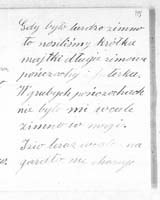 Gdy było bardzo zimno
to nosiliśmy krótkie
majtki długie zimowe
pończochy i
W grubych pończochach
nie było mi wcale
zimno w nogi.
teraz
gardło nie choruję